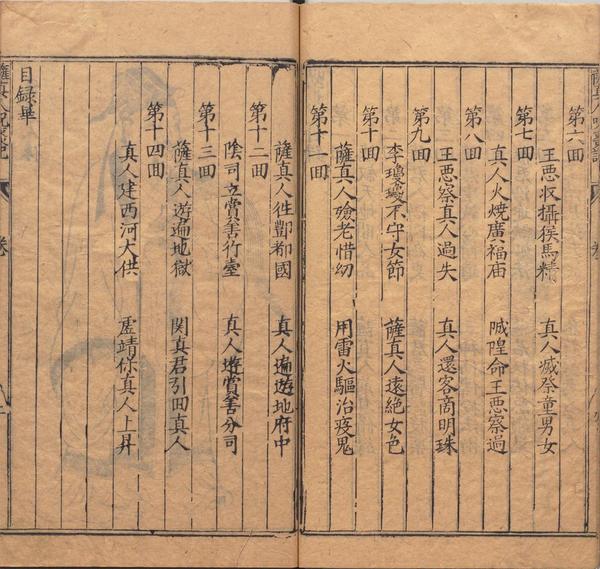 第六回
王惡收攝猴馬精 真人滅祭童男女
第七回
真人火燒廣福庙 城隍命王惡察過
第八回
王惡察真人過失 真人還客商明珠
第九回
李瓊瓊不守女節 薩真人遠絕女色
第十回
薩真人憸老惜幼 用雷火驅治疫鬼
第十一回
薩真人徃酆都國 真人遍遊地府中
第十二回
陰司立賞善行臺 真人遊賞善分司
第十三回
薩真人遊遍地獄 関真君引回真人
第十四回
真人建西河大供 虛靖保真人上昇
目錄畢
薩真人呪棗記
卷